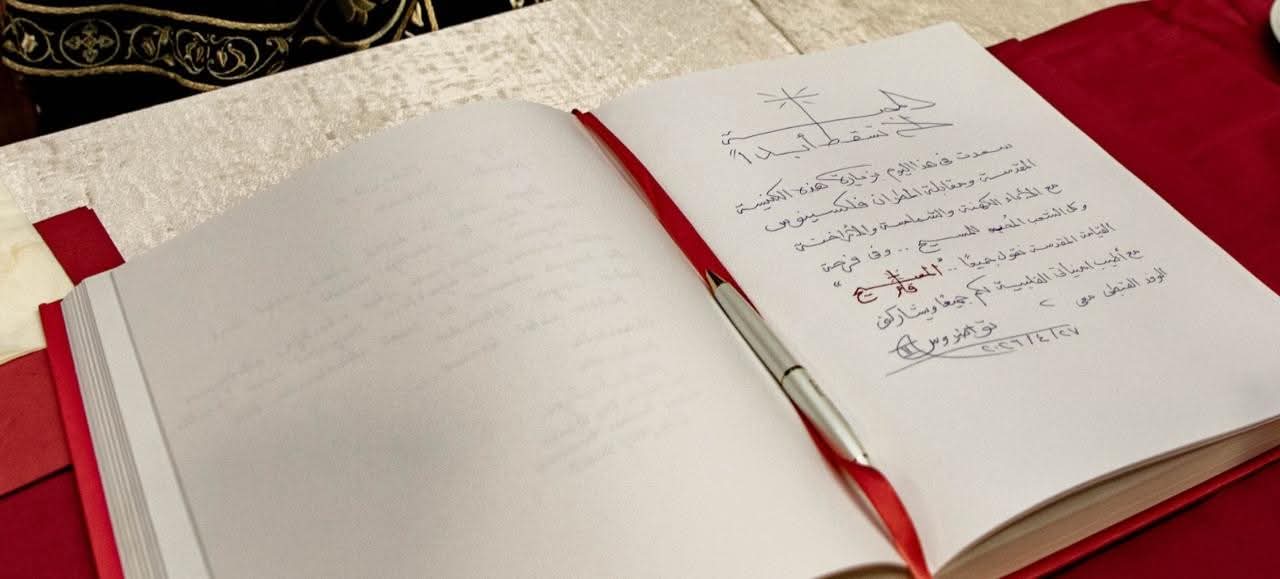 المحبـــة
لا تسقـط أبـدا"
سعدت فى هذا اليوم بزيارة هذه الكنيسة
المقدسة ومقابلة المطران فلكسينوس
مع الآباء الكهنة والشمامسة والأراخنة
وكل الشعب المحب للمسيح .. وفى فرحة
القيامة المقدسة نقول جميعًا .. "المسيح
قام"
مع أطيب امنياتى القلبية لكم جميعا ويشاركنى
الوفد القبطى معى
تواضروس II
٢٠٢٦/٤/٢٧